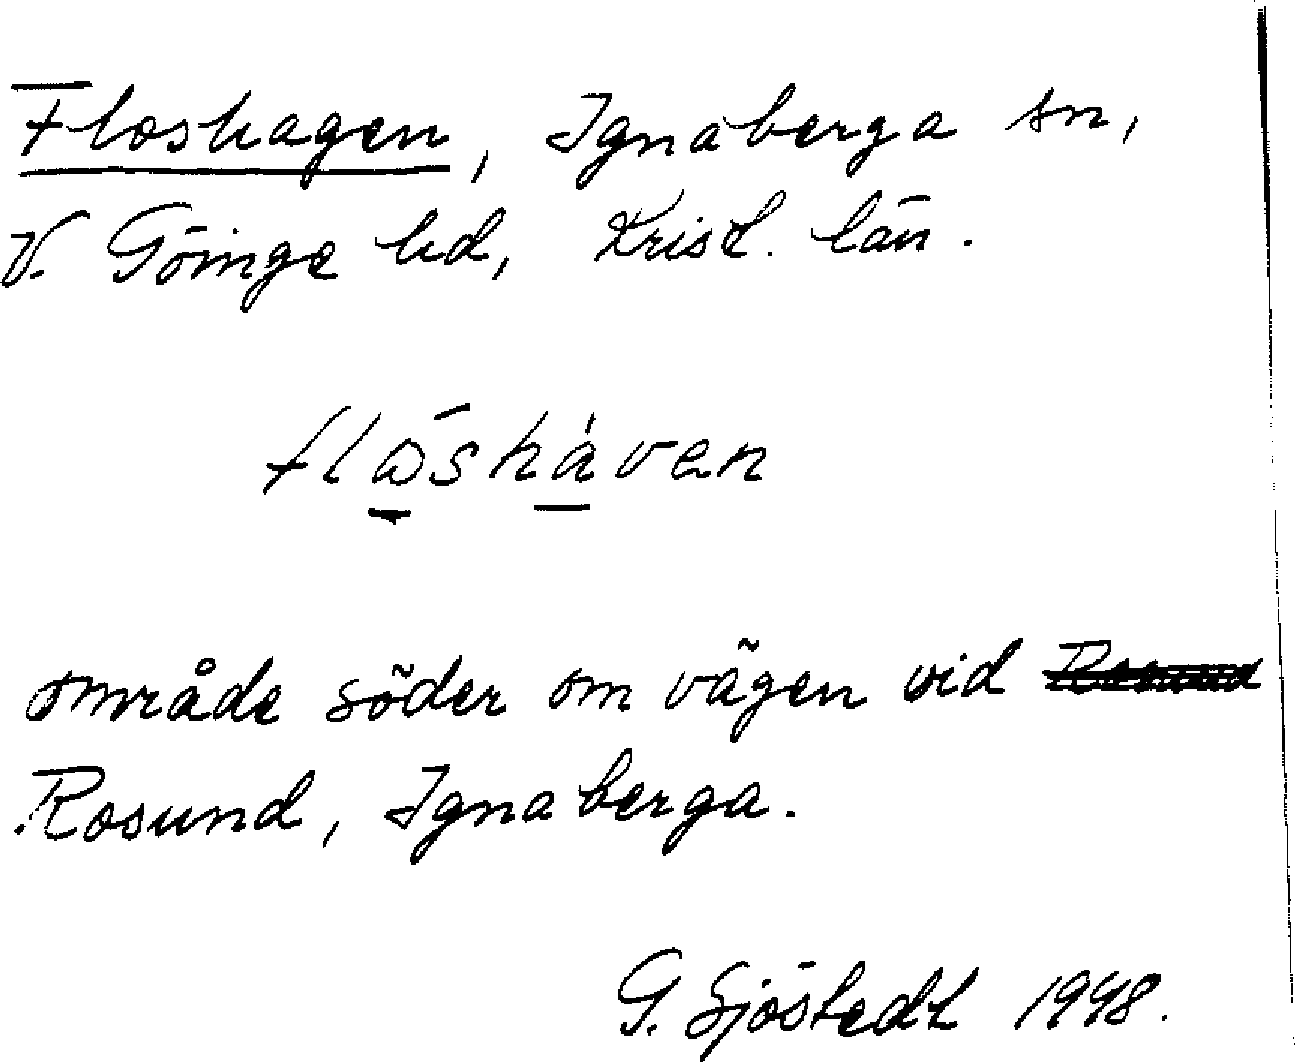 Floshagen, Ignaberga sn,
V. Göinge hd, Krist. län.
flɷ̄shàven
område söder om vägen vid Rosund
Rosund, Ignaberga.
G. Sjöstedt 1998.